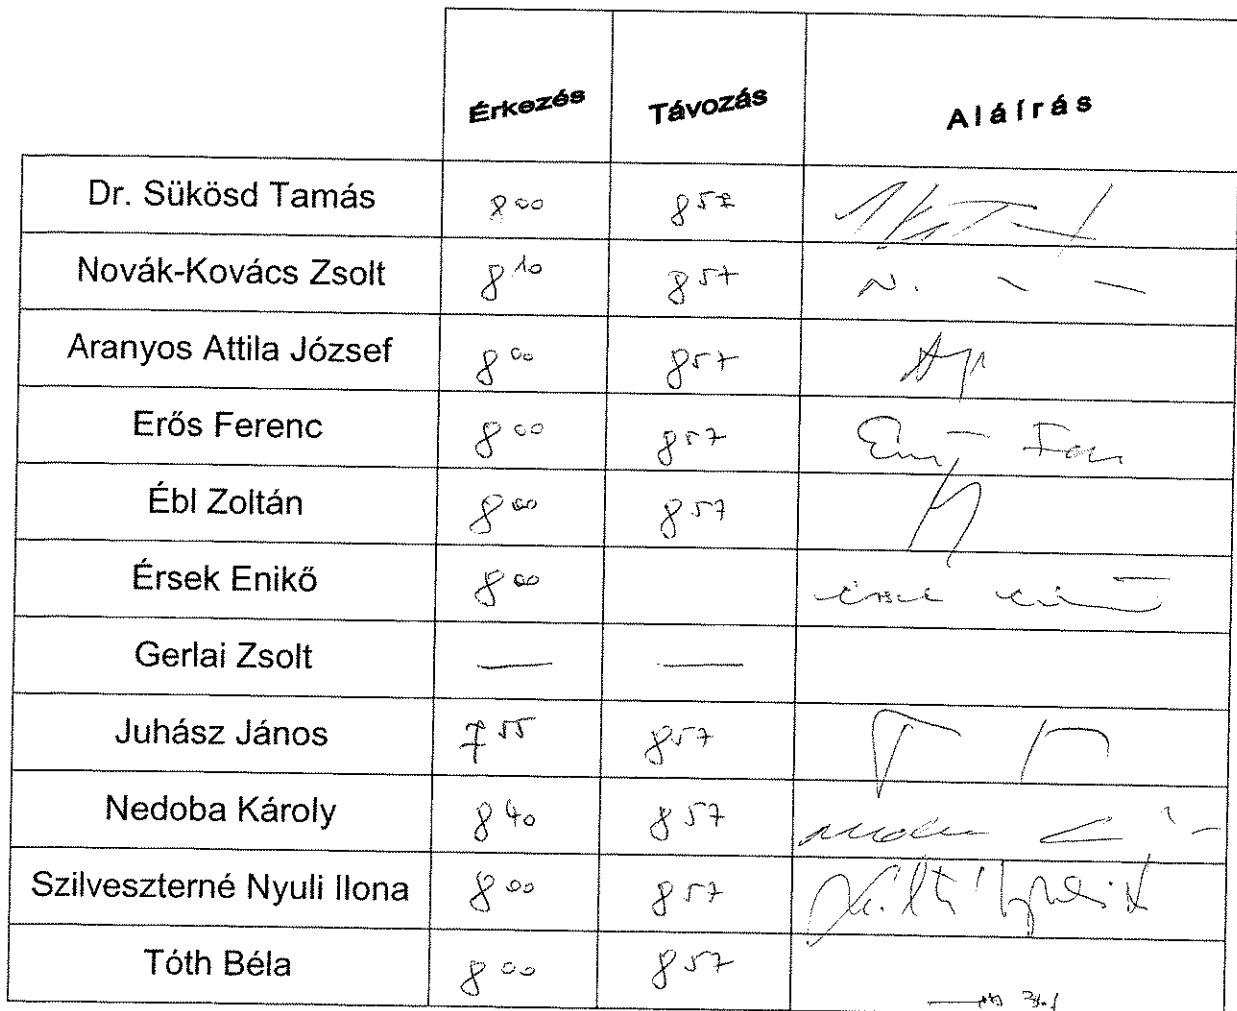 Érkezés Távozás Aláírás
Dr. Sükösd Tamás 8 00 8 57
Novák-Kovács Zsolt 8 10 8 57 N.
Aranyos Attila József 8 00 8 57
Erős Ferenc 8 00 8 57
Ébl Zoltán 8 00 8 57
Érsek Enikő 8 00
Gerlai Zsolt — —
Juhász János 7 55 8 57
Nedoba Károly 8 40 8 57
Szilveszterné Nyuli Ilona 8 00 8 57
Tóth Béla 8 00 8 57